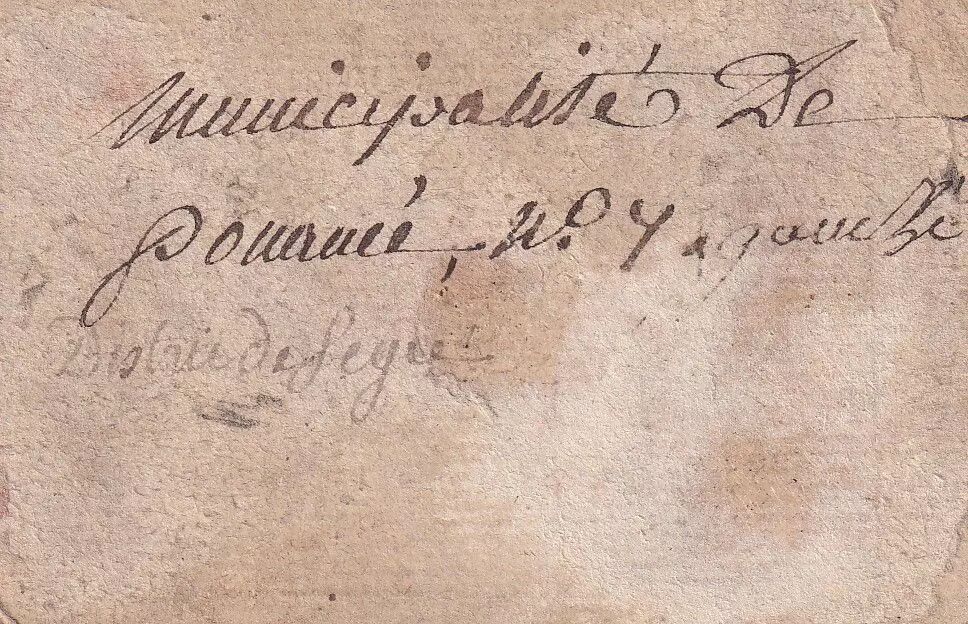 Municipalité De
Pouancé, N.º 7 . gauche
District de Segré